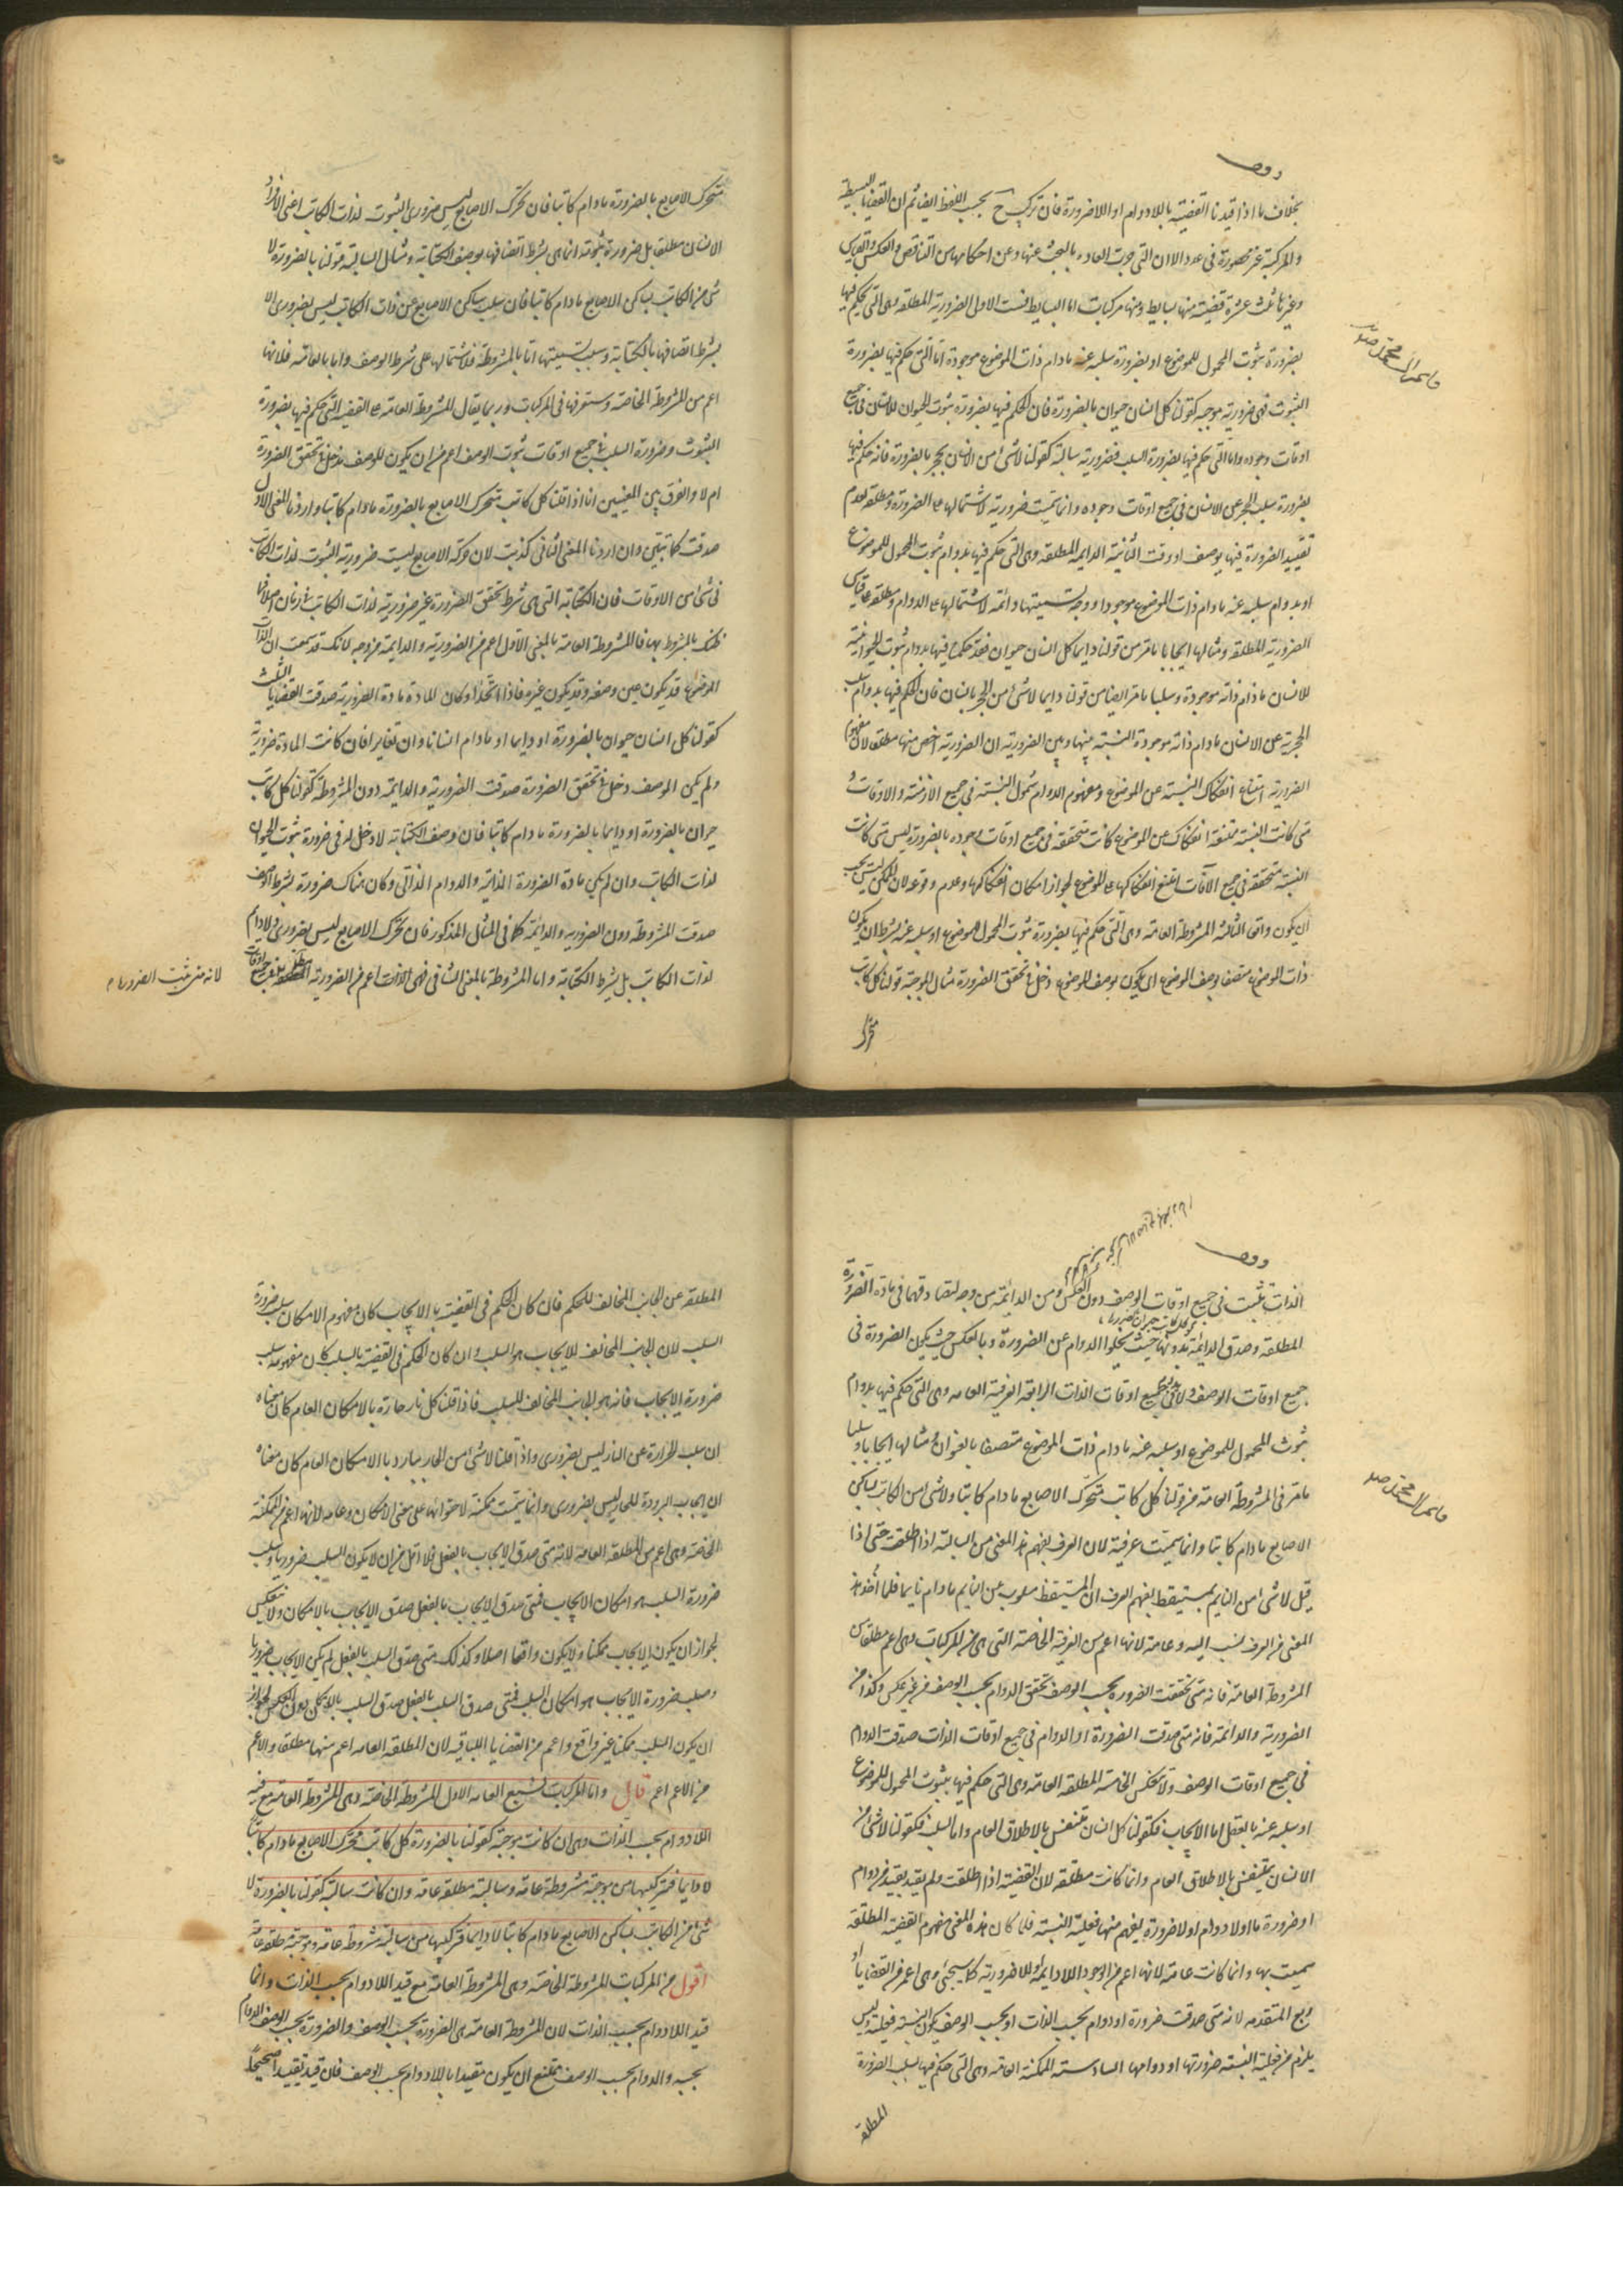 بخلاف ما اذا قيدنا القضية باللادوام او اللاضرورة فان تركيبها ح بحسب اللفظ ايضا ثم ان القضايا البسيطة
والمركبة غير محصورة فى عدد الا ان التى جرت العادة بالبحث عنها وعن احكامها من التناقض والعكس والقياس
وغيرها ثلث عشرة قضية منها بسايط ومنها مركبات اما البسايط فست الاولى الضرورية المطلقه وهى التى يحكم فيها
بضرورة ثبوت المحمول للموضوع او بضرورة سلبه عنه مادام ذات الموضوع موجودة اما التى حكم فيها بضرورة
الثبوت فهى ضرورية موجبه كقولنا كل انسان حيوان بالضرورة فان الحكم فيها بضرورة ثبوت الحيوان للانسان فى جميع
اوقات وجوده واما التى حكم فيها بضرورة السلب فضرورية سالبة كقولنا لاشئ من الانسان بحجر بالضرورة فانه حكم فيها
بضرورة سلب الحجر عن الانسان فى جميع اوقات وجوده وانما سميت ضرورية لاشتمالها على الضرورة ومطلقه لعدم
تقييد الضرورة فيها بوصف او وقت الثانية الدايمه المطلقه وهى التى حكم فيها بدوام ثبوت المحمول للموضوع
او بدوام سلبه عنه مادام ذات الموضوع موجودا ووجه تسميتها دائمه لاشتمالها على الدوام ومطلقه على قياس
الضرورية المطلقه ومثالها ايجابا ما مر من قولنا دايما كل انسان حيوان فقد حكمنا فيها بدوام ثبوت الحيوانية
للانسان مادام ذاته موجودة وسلبا ما مر ايضا من قولنا دايما لاشئ من الحجر بانسان فان الحكم فيها بدوام سلب
الحجرية عن الانسان مادام ذاته موجودة النسبة بينها وبين الضرورية ان الضرورية اخص منها مطلقا لان مفهوم
الضرورية امتناع انفكاك النسبة عن الموضوع ومفهوم الدوام شمول النسبة فى جميع الازمنة والاوقات و
متى كانت النسبة ممتنعة انفكاك عن الموضوع كانت متحققة فى جميع اوقات وجوده بالضرورة ليس متى كانت
النسبة متحققة فى جميع الاوقات امتنع انفكاكها عن الموضوع لجواز امكان انفكاكها وعدم وقوعه لان الممكن ليس يجب
ان يكون واقعا الثالثه المشروطة العامة وهى التى حكم فيها بضرورة ثبوت المحمول للموضوع او سلبه عنه بشرط ان يكون
ذات الموضوع متصفا بوصف الموضوع اى يكون لوصف الموضوع دخل فى تحقق الضرورة مثال الموجبة قولنا كل كاتب
متحرك
متحرك الاصابع بالضرورة مادام كاتبا فان تحرك الاصابع ليس ضرورى الثبوت لذات الكاتب اعنى افراد
الانسان مطلقا بل ضرورة ثبوته انما هى بشرط اتصافها بوصف الكتابة ومثال السالبة قولنا بالضرورة لا
شئ من الكاتب بساكن الاصابع مادام كاتبا فان سلب ساكن الاصابع عن ذات الكاتب ليس بضرورى الا
بشرط اتصافها بالكتابة وسبب تسميتها اما بالمشروطة فلاشتمالها على شرط الوصف واما بالعامه فلانها
اعم من المشروطة الخاصة وستعرفها فى المركبات وربما يقال المشروطة العامة على القضية التى حكم فيها بضرورة
الثبوت وضرورة السلب فى جميع اوقات ثبوت الوصف اعم من ان يكون للوصف مدخل فى تحقق الضرورة
ام لا والفرق بين المعنيين انا اذا قلنا كل كاتب متحرك الاصابع بالضرورة مادام كاتبا واردنا المعنى الاول
صدقت كما تبين وان اردنا المعنى الثانى كذبت لان حركة الاصابع ليست ضرورية الثبوت لذات الكاتب
فى شئ من الاوقات فان الكتابة التى هى شرط تحقق الضرورة غير ضرورية لذات الكاتب فى زمان اصلا فما
ظنك بالمشروط بها فالمشروطة العامة بالمعنى الاول اعم من الضرورية والدايمة من وجه لانك قد سمعت ان ذات
الموضوع قد يكون عين وصفه وقد يكون غيره فاذا اتحدا وكان المادة مادة الضرورية صدقت القضايا الثلث
كقولنا كل انسان حيوان بالضرورة او دايما او مادام انسانا وان تغايرا فان كانت المادة ضرورية
ولم يكن للوصف دخل فى تحقق الضرورة صدقت الضرورية والدايمة دون المشروطة كقولنا كل كاتب
حيوان بالضرورة او دايما بالضرورة مادام كاتبا فان وصف الكتابة لا دخل له فى ضرورة ثبوت الحيوان
لذات الكاتب وان لم يكن مادة الضرورة الذاتيه والدوام الذاتى وكان هناك ضرورة بشرط الوصف
صدقت المشروطة دون الضروريه والدائمه كما فى المثال المذكور فان تحرك الاصابع ليس بضرورى ولا دايم
لذات الكاتب بل بشرط الكتابة واما المشروطة بالمعنى الثانى فهى اعم من الضرورية المطلقة
لانه متى ثبت الضرورة
الذات ثبت فى جميع اوقات الوصف دون العكس ومن الدائمه من وجه لتصادقهما فى مادة الضرورة
المطلقه وصدق الدايمة بدونها حيث يخلوا الدوام عن الضرورة وبالعكس حيث يكون الضرورة فى
جميع اوقات الوصف ولا فى جميع اوقات الذات الرابعة العرفية العامه وهى التى حكم فيها بدوام
ثبوت المحمول للموضوع او سلبه عنه مادام ذات الموضوع متصفا بالعنوان ومثالها ايجابا وسلبا
ما مر فى المشروطة العامة من قولنا كل كاتب متحرك الاصابع مادام كاتبا ولاشئ من الكاتب بساكن
الاصابع مادام كاتبا وانما سميت عرفية لان العرف يفهم هذا المعنى من السالبة اذا اطلقت حتى اذا
قيل لاشئ من النايم بمستيقظ يفهم العرف ان المستيقظ مسلوب عن النايم مادام نايما فلما اخذ هذا
المعنى من العرف نسب اليه وعامة لانها اعم من العرفية الخاصة التى هى من المركبات وهى اعم مطلقا من
المشروطة العامة فانه متى تحققت الضرورة بحسب الوصف تحقق الدوام بحسب الوصف من غير عكس وكذا من
الضرورية والدائمة فانه متى صدقت الضرورة او الدوام فى جميع اوقات الذات صدقت الدوام
فى جميع اوقات الوصف ولا ينعكس الخامسه المطلقه العامه وهى التى حكم فيها بثبوت المحمول للموضوع
او سلبه عنه بالفعل اما الايجاب فكقولنا كل انسان متنفس بالاطلاق العام واما السلب فكقولنا لاشئ من
الانسان بمتنفس بالاطلاق العام وانما كانت مطلقه لان القضية اذا اطلقت ولم يقيد بقيد من دوام
او ضرورة ما اولا دوام او لا ضرورة يفهم منها فعلية النسبة فلما كان هذا المعنى مفهوم القضية المطلقة
سميت بها وانما كانت عامة لانها اعم من الوجودية اللادائمة واللاضرورية كما سيجئ وهى اعم من القضايا الا
ربع المتقدمه لانه متى صدقت ضرورة او دوام بحسب الذات او بحسب الوصف يكون النسبة فعلية وليس
يلزم من فعلية النسبة ضرورتها او دوامها السادسة الممكنة العامة وهى التى حكم فيها بسلب الضرورة
المطلقة
المطلقه عن الجانب المخالف للحكم فان كان الحكم فى القضية بالايجاب كان مفهوم الامكان سلب ضرورة
السلب لان الجانب المخالف للايجاب هو السلب وان كان الحكم فى القضية بالسلب كان مفهومه سلب
ضرورة الايجاب فانه هو الجانب المخالف للسلب فاذا قلنا كل نار حارة بالامكان العام كان معناه
ان سلب الحرارة عن النار ليس بضرورى واذا قلنا لاشئ من الحار ببارد بالامكان العام كان معناه
ان ايجاب البرودة للحار ليس بضرورى وانما سميت ممكنة لاحتوائها على معنى الامكان وعامه لانها اعم من الممكنة
الخاصة وهى اعم من المطلقه العامة لانه متى صدق الايجاب بالفعل فلا اقل من ان لا يكون السلب ضروريا وسلب
ضرورة السلب هو امكان الايجاب فمتى صدق الايجاب بالفعل صدق الايجاب بالامكان ولا ينعكس
لجواز ان يكون الايجاب ممكنا ولا يكون واقعا اصلا وكذلك متى صدق السلب بالفعل لم يكن الايجاب ضروريا
وسلب ضرورة الايجاب هو امكان السلب فمتى صدق السلب بالفعل صدق السلب بالامكان دون العكس لجواز
ان يكون السلب ممكنا غير واقع واعم من القضايا الباقيه لان المطلقه العامه اعم منها مطلقا والاعم
من الاعم اعم قال واما المركبات فسبع العامه الاولى المشروطة الخاصة وهى المشروطة العامة مع قيد
اللادوام بحسب الذات وهى ان كانت موجبة كقولنا بالضرورة كل كاتب متحرك الاصابع مادام كاتبا
لا دايما فتركيبها من موجبة مشروطة عامة وسالبة مطلقه عامه وان كانت سالبة كقولنا بالضرورة لا
شئ من الكاتب بساكن الاصابع مادام كاتبا لا دايما فتركيبها من سالبة مشروطة عامة وموجبة مطلقه عامة
اقول من المركبات المشروطة الخاصة وهى المشروطة العامة مع قيد اللادوام بحسب الذات وانما
قيد اللادوام بحسب الذات لان المشروطة العامة هى الضرورة بحسب الوصف والضرورة بحسب الوصف دوام
بحسبه والدوام بحسب الوصف يمتنع ان يكون مقيدا باللادوام بحسب الوصف فان قيد تقييدا صحيحا